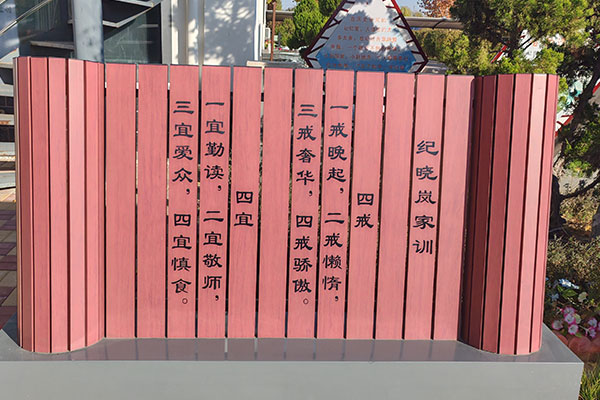 纪晓岚家训
四戒
一戒晚起，二戒懒惰，
三戒奢华，四戒骄傲。
四宜
一宜勤读，二宜敬师，
三宜爱众，四宜慎食。